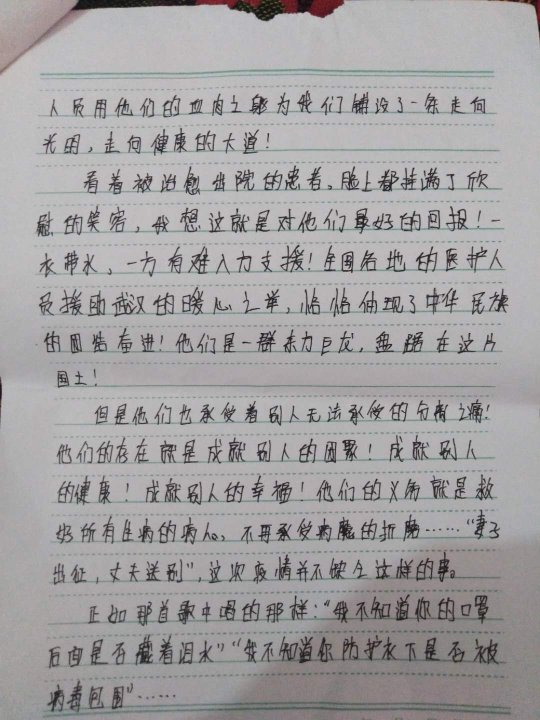 人员用他们的血肉之躯为我们铺设了一条走向
光明，走向健康的大道！
看着被治愈出院的患者，脸上都挂满了欣
慰的笑容，我想这就是对他们最好的回报！一
衣带水，一方有难八力支援！全国各地的医护人
员援助武汉的暖心之举，恰恰体现了中华民族
的团结奋进！他们是一群东方巨龙，盘踞在这片
国土！
但是他们也承受着别人无法承受的分离之痛！
他们的存在就是成就别人的团聚！成就别人
的健康！成就别人的幸福！他们的义务就是救
好所有生病的病人。不再承受病魔的折磨……“妻子
出征，丈夫送别”，这次疫情并不缺乏这样的事。
正如那首歌中唱的那样：“我不知道你的口罩
后面是否藏着泪水”“我不知道你防护衣下是否被
病毒包围”……